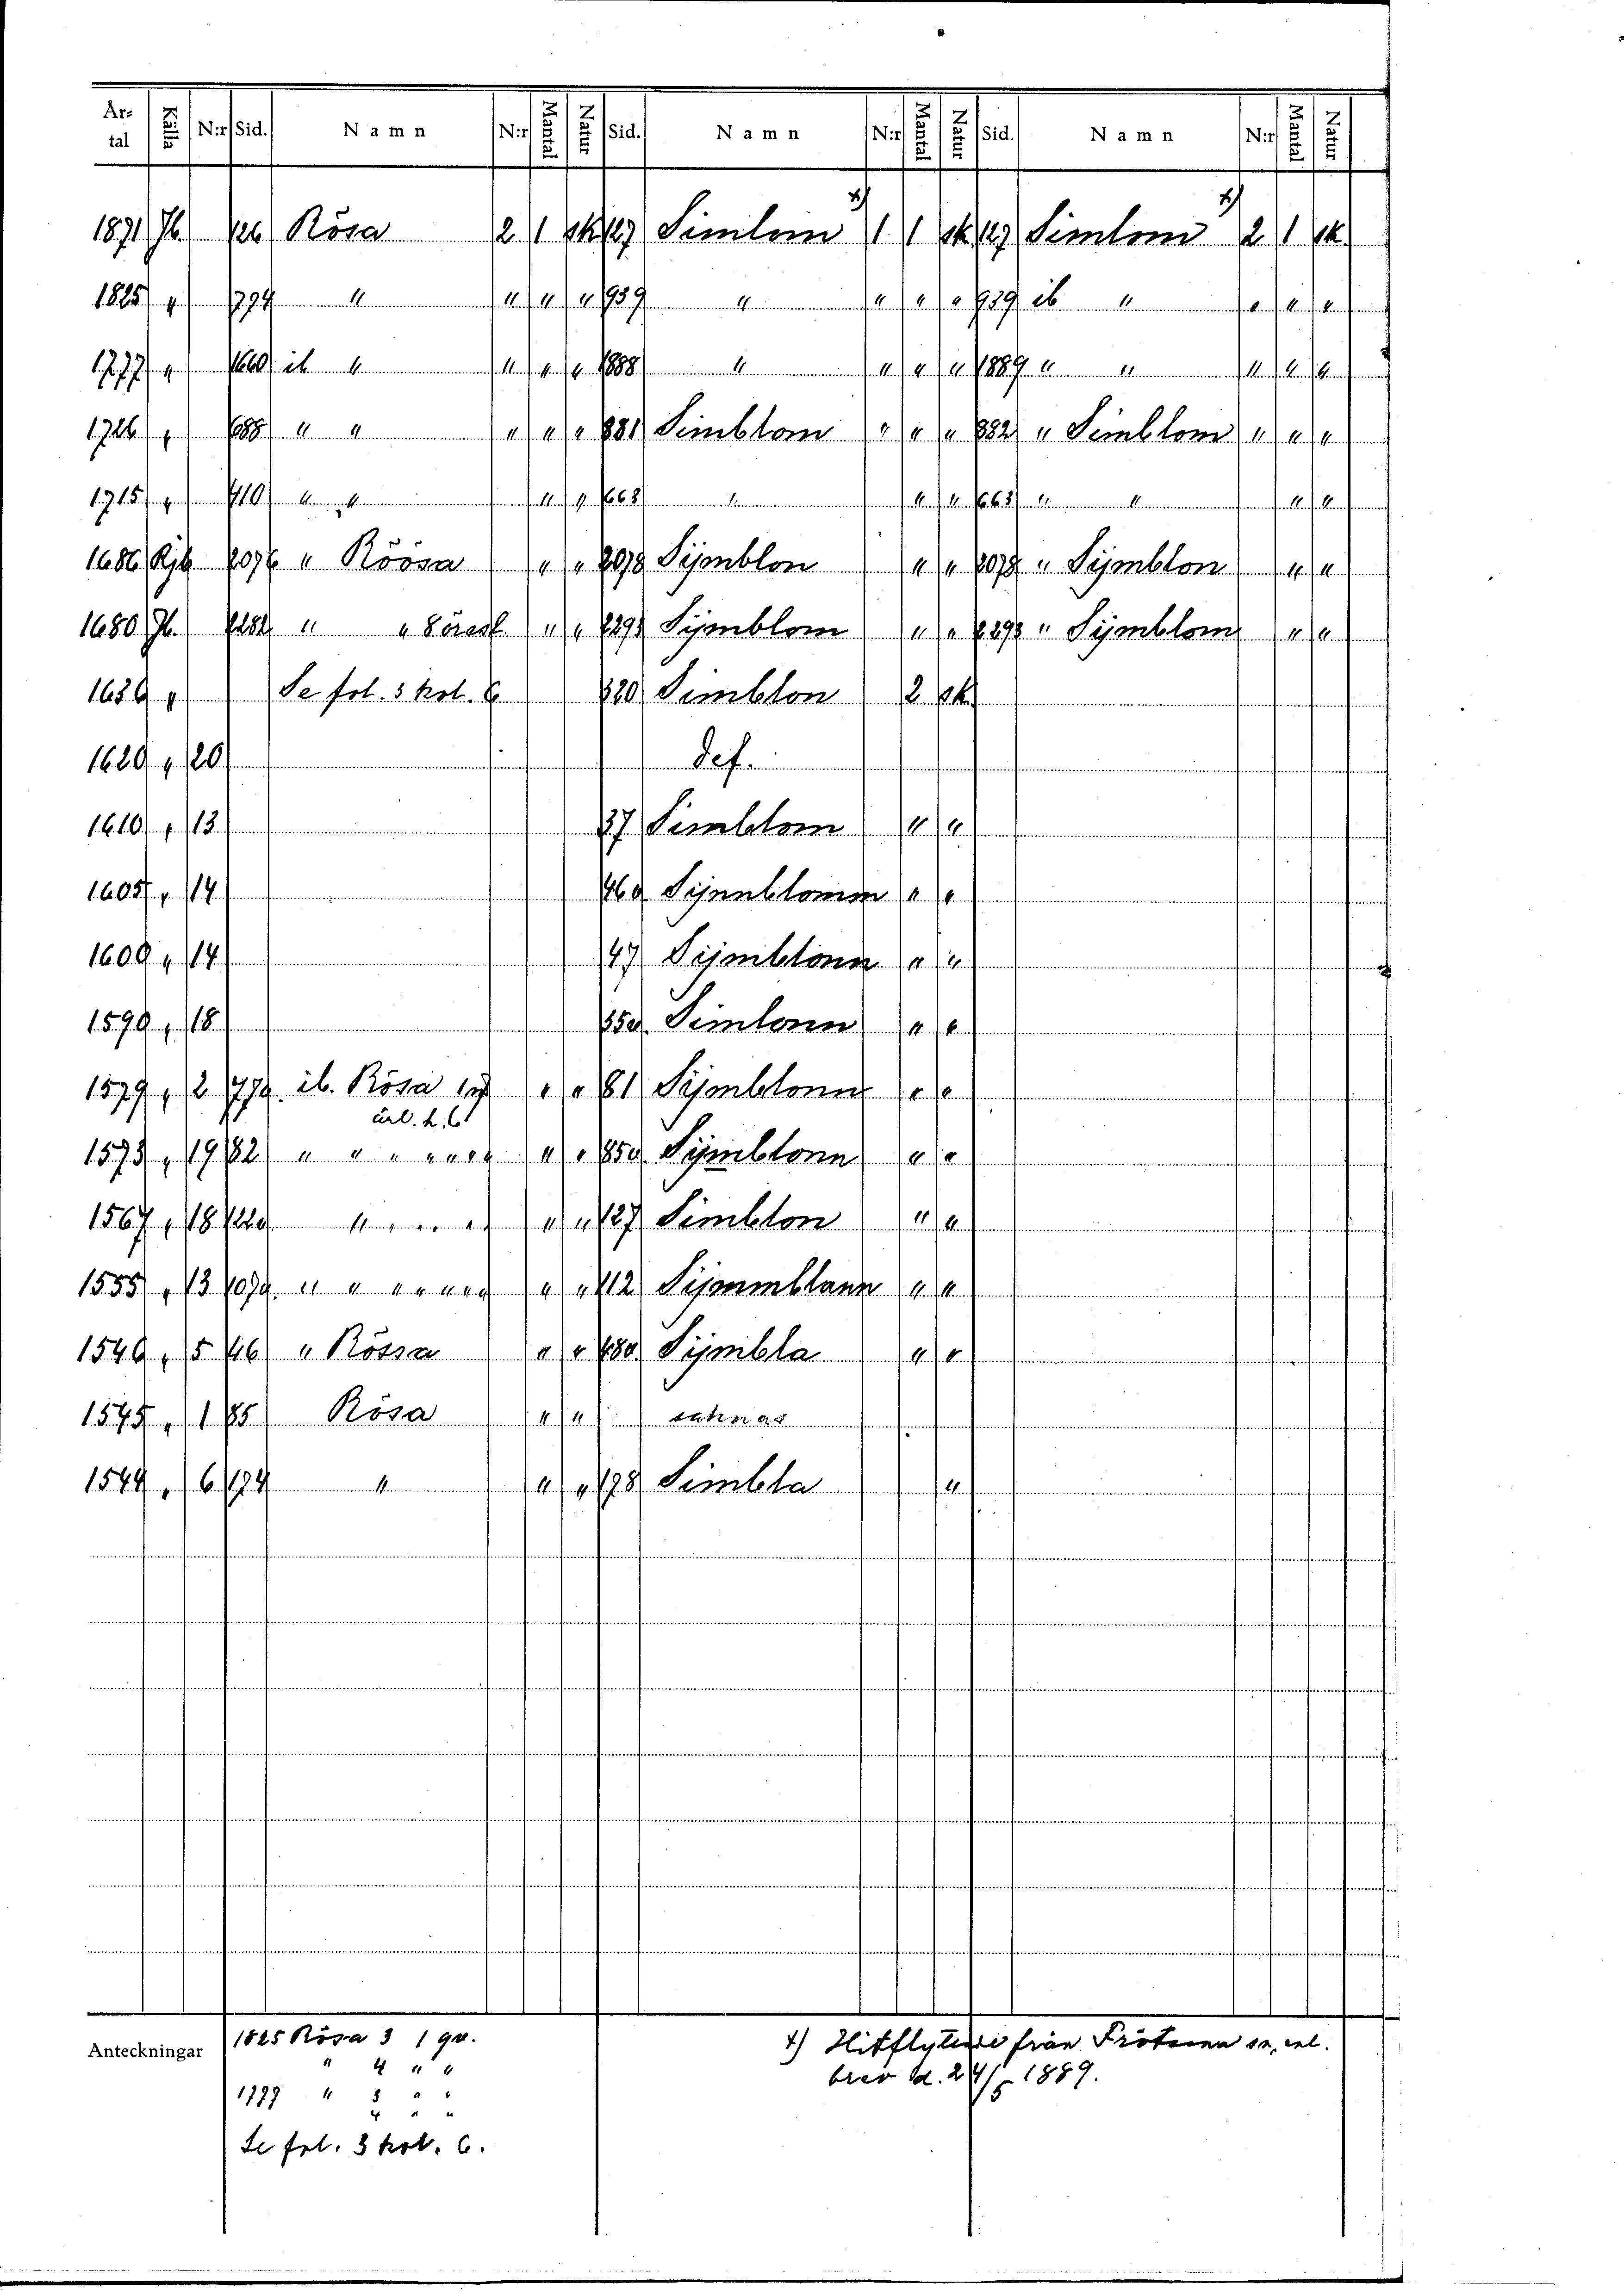 År-tal Källa N:r Sid. Namn N:r Mantal Natur Sid. Namn N:r Mantal Natur Sid. Namn N:r Mantal Natur
1871 Jb. 126 Rösa 2 1 sk 127 Simlom x) 1 1 sk 127 Simlom x) 2 1 sk.
1825 " 794 " " " " 959 " " " " 959 ib " " " "
1777 " 1660 ib " " " " 1888 " " " " 1889 " " " " "
1726 " 688 " " " " " 881 Simblom " " " 882 " Simblom " " "
1715 " 410 " " " " 663 " " " 663 " " " "
1686 Rjb 2076 " Röösa " " 2079 Sijmblon " " 2079 " Sijmblon " "
1680 Jb. 2282 " " " " 2293 Sijmblom " " 2293 " Sijmblom " "
1636 " Se fol. 3 kol. 6 320 Simblon 2 sk
1620 " 20 def.
1610 " 13 37 Simblom " "
1605 " 14 46v Sijmblomm " "
1600 " 14 47 Sijmblonn " "
1590 " 18 35v Simlonn " "
1579 " 2 77v ib. Rösa " " 81 Sijmblonn " "
url. k. 6
1573 " 19 82 " " " " " " " " 85v Sijmblonn " "
1567 " 18 122v " " " " " " 127 Simblon " "
1555 " 13 107v " " " " " " " " 112 Sijmmblann " "
1546 " 5 46 " Rössa " " 48v Sijmbla " "
1545 " 1 85 Rösa " " saknas
1544 " 6 174 " " " 178 Simbla "
Anteckningar
1825 Rösa 3 1 qv.
" 4 " "
1777 " 3 " "
4 " "
Se fol. 3 kol. 6.
x) Hitflyttade från Frötuna sn, enl.
brev d. 24/5 1889.